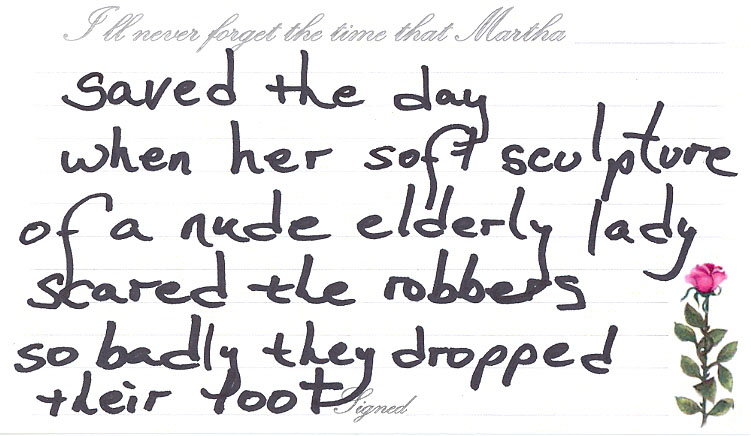 I'll never forget the time that Martha
saved the day
when her soft sculpture
of a nude elderly lady
scared the robbers
so badly they dropped
their loot
Signed